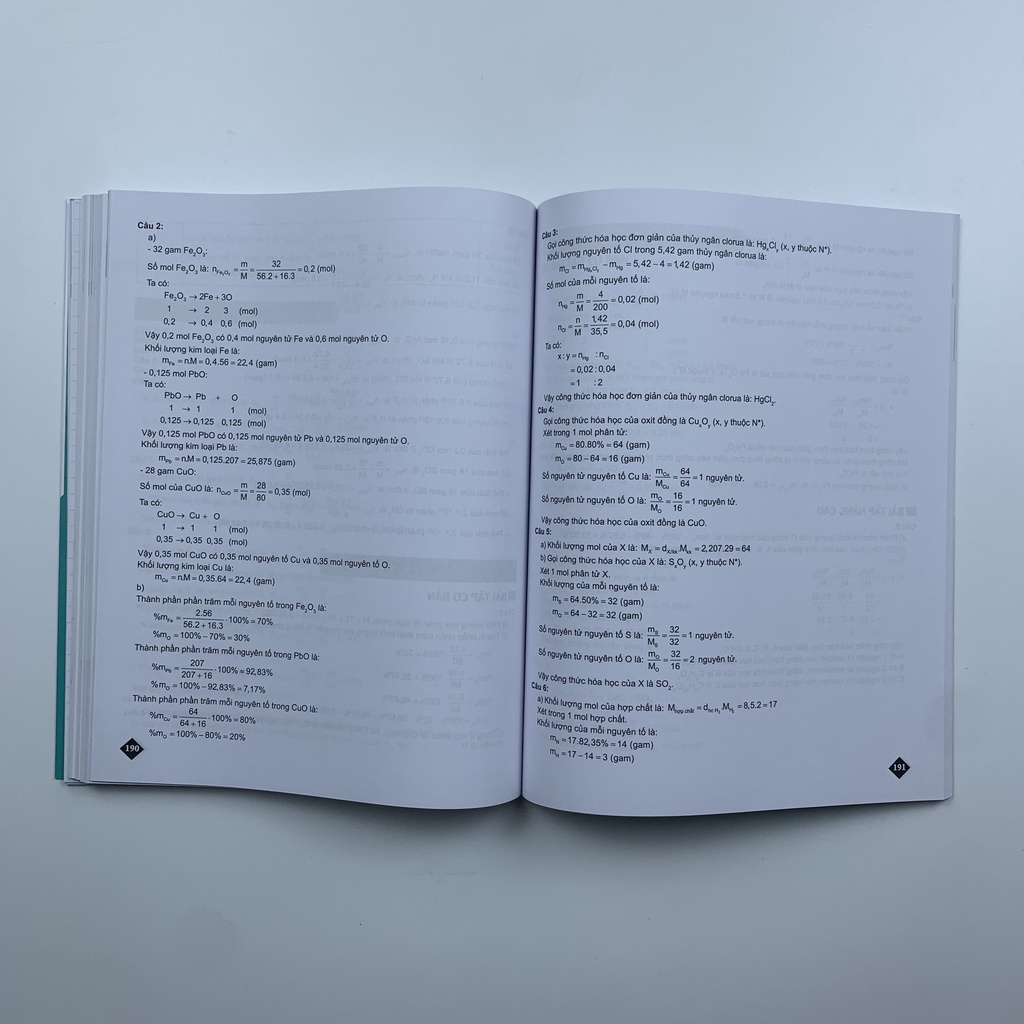 Câu 2:
a)
- 32 gam Fe₂O₃:
Số mol Fe₂O₃ là: n_Fe₂O₃ = m/M = 32/(56.2 + 16.3) = 0,2 (mol)
Ta có:
Fe₂O₃ → 2Fe + 3O
1 → 2 3 (mol)
0,2 → 0,4 0,6 (mol)
Vậy 0,2 mol Fe₂O₃ có 0,4 mol nguyên tử Fe và 0,6 mol nguyên tử O.
Khối lượng kim loại Fe là:
m_Fe = n.M = 0,4.56 = 22,4 (gam)
- 0,125 mol PbO:
Ta có:
PbO → Pb + O
1 → 1 1 (mol)
0,125 → 0,125 0,125 (mol)
Vậy 0,125 mol PbO có 0,125 mol nguyên tử Pb và 0,125 mol nguyên tử O.
Khối lượng kim loại Pb là:
m_Pb = n.M = 0,125.207 = 25,875 (gam)
- 28 gam CuO:
Số mol của CuO là: n_CuO = m/M = 28/80 = 0,35 (mol)
Ta có:
CuO → Cu + O
1 → 1 1 (mol)
0,35 → 0,35 0,35 (mol)
Vậy 0,35 mol CuO có 0,35 mol nguyên tố Cu và 0,35 mol nguyên tố O.
Khối lượng kim loại Cu là:
m_Cu = n.M = 0,35.64 = 22,4 (gam)
b)
Thành phần phần trăm mỗi nguyên tố trong Fe₂O₃ là:
%m_Fe = 2.56/(56.2 + 16.3) . 100% = 70%
%m_O = 100% − 70% = 30%
Thành phần phần trăm mỗi nguyên tố trong PbO là:
%m_Pb = 207/(207 + 16) . 100% ≈ 92,83%
%m_O = 100% − 92,83% = 7,17%
Thành phần phần trăm mỗi nguyên tố trong CuO là:
%m_Cu = 64/(64 + 16) . 100% = 80%
%m_O = 100% − 80% = 20%
190
Câu 3:
Gọi công thức hóa học đơn giản của thủy ngân clorua là: HgₓClᵧ (x, y thuộc N*).
Khối lượng nguyên tố Cl trong 5,42 gam thủy ngân clorua là:
m_Cl = m_HgₓClᵧ − m_Hg = 5,42 − 4 = 1,42 (gam)
Số mol của mỗi nguyên tố là:
n_Hg = m/M = 4/200 = 0,02 (mol)
n_Cl = n/M = 1,42/35,5 = 0,04 (mol)
Ta có:
x : y = n_Hg : n_Cl
= 0,02 : 0,04
= 1 : 2
Vậy công thức hóa học đơn giản của thủy ngân clorua là: HgCl₂.
Câu 4:
Gọi công thức hóa học của oxit đồng là CuₓOᵧ (x, y thuộc N*).
Xét trong 1 mol phân tử:
m_Cu = 80.80% = 64 (gam)
m_O = 80 − 64 = 16 (gam)
Số nguyên tử nguyên tố Cu là: m_Cu/M_Cu = 64/64 = 1 nguyên tử.
Số nguyên tử nguyên tố O là: m_O/M_O = 16/16 = 1 nguyên tử.
Vậy công thức hóa học của oxit đồng là CuO.
Câu 5:
a) Khối lượng mol của X là: M_X = d_X/kk.M_kk = 2,207.29 = 64
b) Gọi công thức hóa học của X là: SₓOᵧ (x, y thuộc N*).
Xét 1 mol phân tử X.
Khối lượng của mỗi nguyên tố là:
m_S = 64.50% = 32 (gam)
m_O = 64 − 32 = 32 (gam)
Số nguyên tử nguyên tố S là: m_S/M_S = 32/32 = 1 nguyên tử.
Số nguyên tử nguyên tố O là: m_O/M_O = 32/16 = 2 nguyên tử.
Vậy công thức hóa học của X là SO₂.
Câu 6:
a) Khối lượng mol của hợp chất là: M_hợp chất = d_hc/H₂.M_H₂ = 8,5.2 = 17
Xét trong 1 mol hợp chất.
Khối lượng của mỗi nguyên tố là:
m_N = 17.82,35% = 14 (gam)
m_H = 17 − 14 = 3 (gam)
191